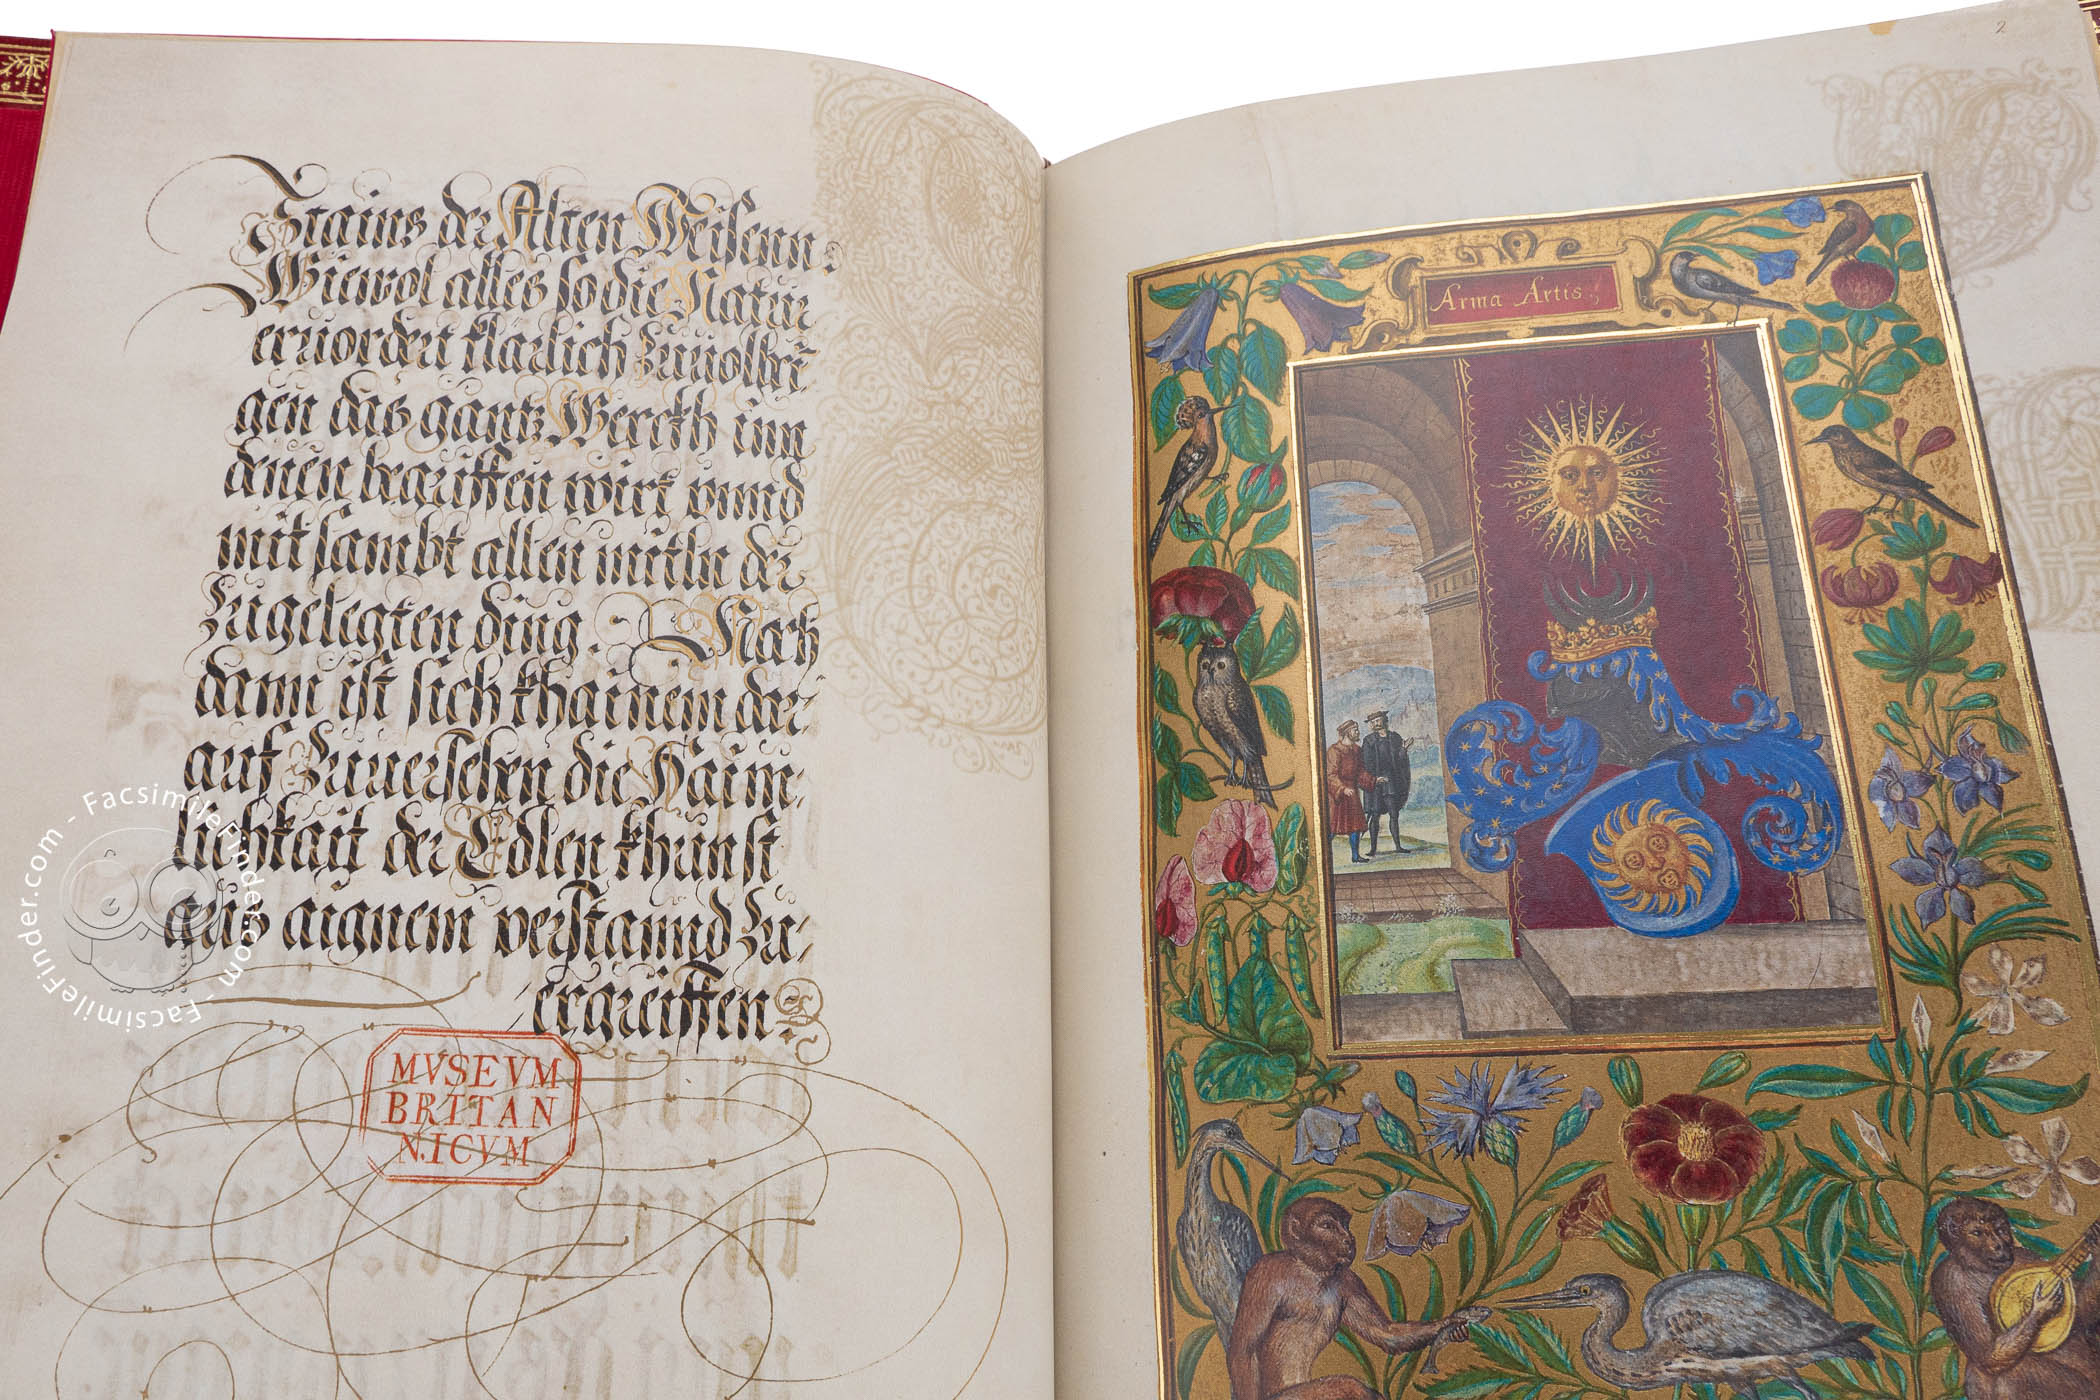 Stains der Alten Weisenn:
Wiewol alles so die Natur
eruordert klärlich zuuolbri
gen das gantz Werckh inn
denen begriffen wirt vnnd
mit sambt allen mitln der
zugelegten ding. Nach
dann ist sich khainem dar,
auf zuuersehen die Haim,
lichkait der Edlen khunst
aus aignem verstannd zu,
ergreiffen
MVSEVM
BRITAN
NICVM
FacsimileFinder.com - FacsimileFinder.com - FacsimileFinder.com
2
Arma Artis;